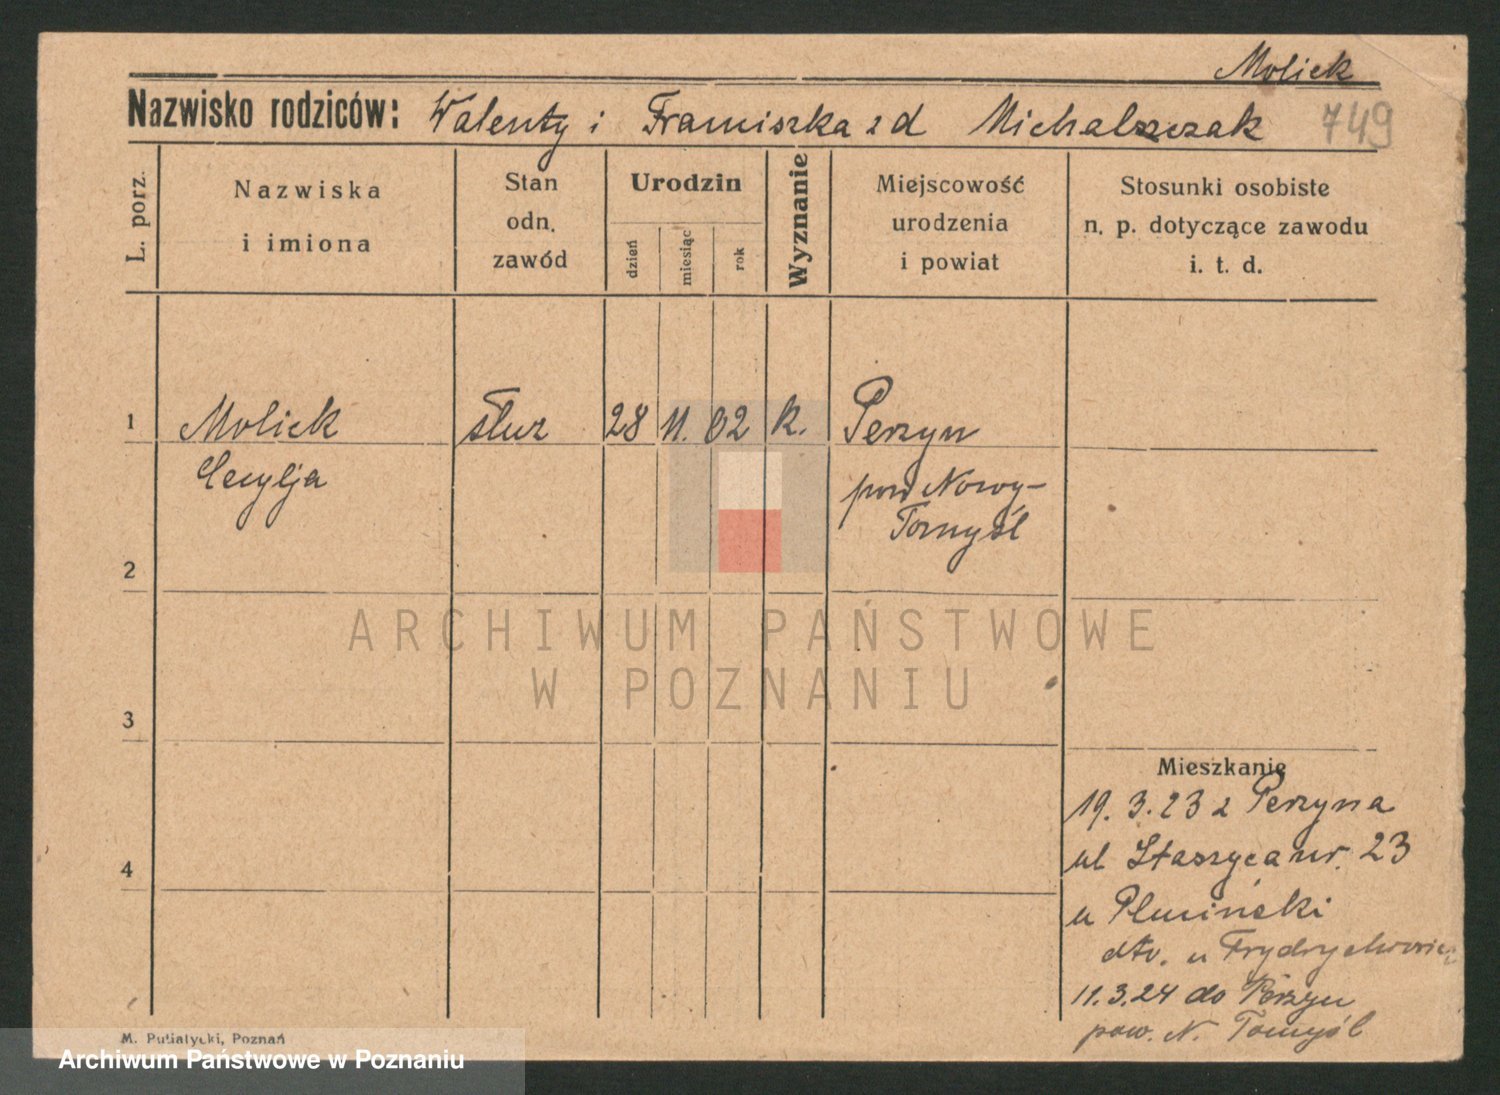 Molick
Nazwisko rodziców: Walenty i Franciszka z d Michalszczak 749
L. porz.
Nazwiska
i imiona
Stan
odn.
zawód
Urodzin
dzień
miesiąc
rok
Wyznanie
Miejscowość
urodzenia
i powiat
Stosunki osobiste
n. p. dotyczące zawodu
i. t. d.
1 Molick służ 28 11. 02 k. Perzyn
Cecylja
pow Nowy-
Tomyśl
2
ARCHIWUM PAŃSTWOWE
W POZNANIU
3
Mieszkanie
19. 3. 23 z Perzyna
ul Staszyca nr. 23
4
u Pluciński
dto. u Frydrychowicz
11.3.24 do Perzyn
pow. N. Tomyśl
M. Putiatycki, Poznań
Archiwum Państwowe w Poznaniu